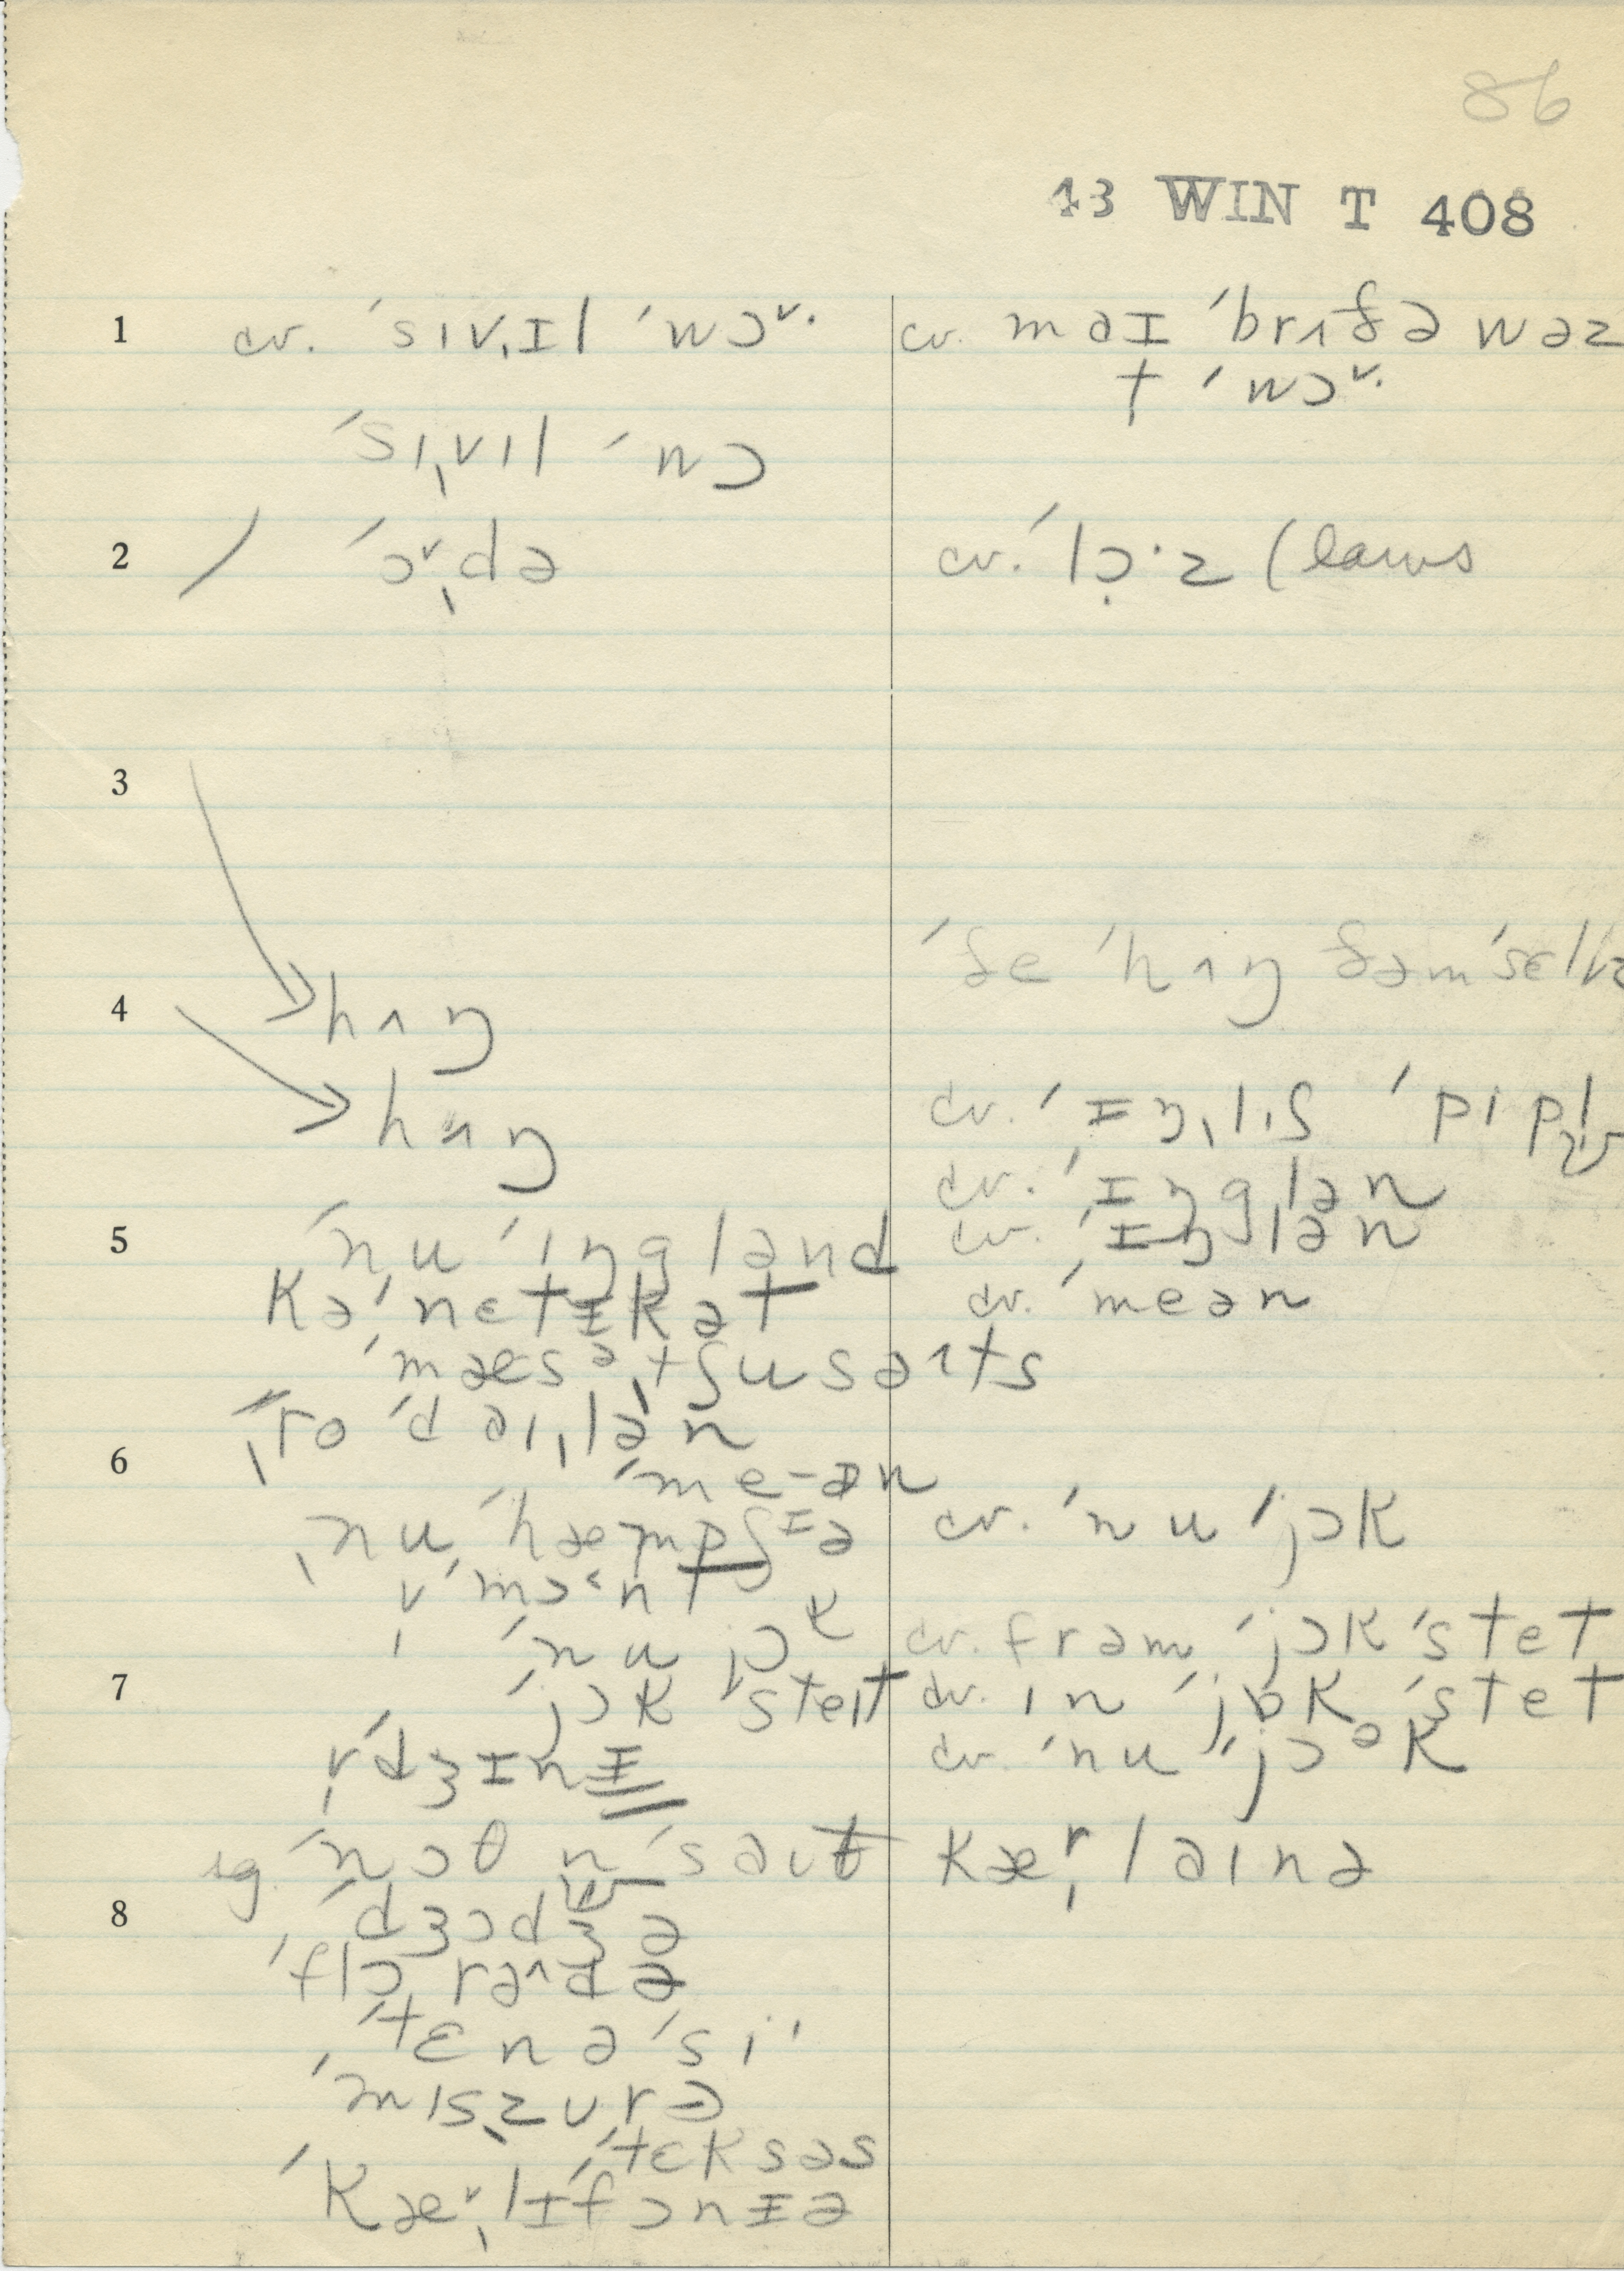 86
43 WIN T 408
1 cv. ˈsɪvˌɪl ˈwɔᵛ· cv. maɪ ˈbrʌðə wəz
t ˈwɔᵛ·
ˈsɪˌvɪl ˈwɔ
2 / ˈɔᵛˌdə cv. ˈlɔ̣·z (laws
3
ˈðe ˈhʌŋ ðəmˈsɛlvz
4 hʌŋ
hʌŋ cv. ˈɪŋˌlɪʃ ˈpipl̩
cv. ˈɪŋglən
5 ˈnu ˈɪŋglənd cv. ˈɪŋlən
kəˈnɛtɪkət cv. ˈmeən
ˈmæsəˌtʃusəɪts
ˌro ˈdaɪˌlən
6 ˈme-ən
ˌnu ˈhæmpʃɪə cv. ˈnu ˈjɔk
vˈmɔ˂nt
ˈnu jɔk cv. frəm ˈjɔk ˈstet
7 ˈjɔk ˈsteɪt cv. ɪn ˈjɔk ˈstet
vˈdʒɪnɪ cv. ˈnu ˈjɔᵊk
ˈnɔθ n ˈsaʊθ kærˌlaɪnə
8 ˈdʒɔdʒə
ˈflɔrə^də
ˈtɛnəˈsi
ˈmɪsˌzʊrə
ˈtɛksəs
ˈkæᵛˌlɪˈfɔnɪə